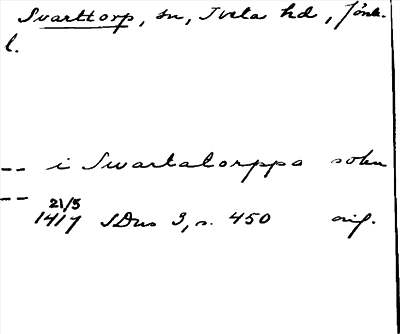 Svarttorp, sn, Tveta hd, Jönk.
l.
-- i Swartatorppa sokn
--
21/5
1417 SDns 3, s. 450 orig.